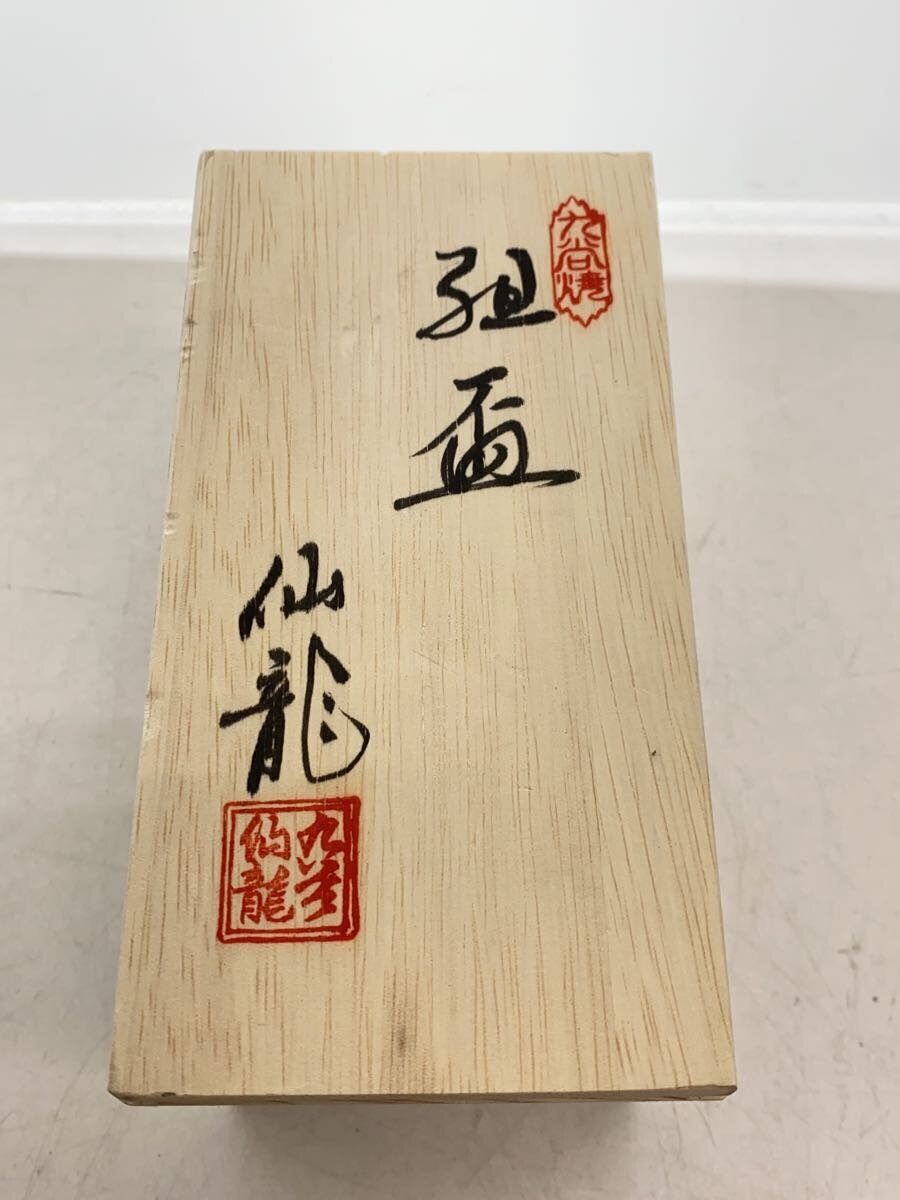 九谷焼
組盃
仙龍
九谷
仙龍